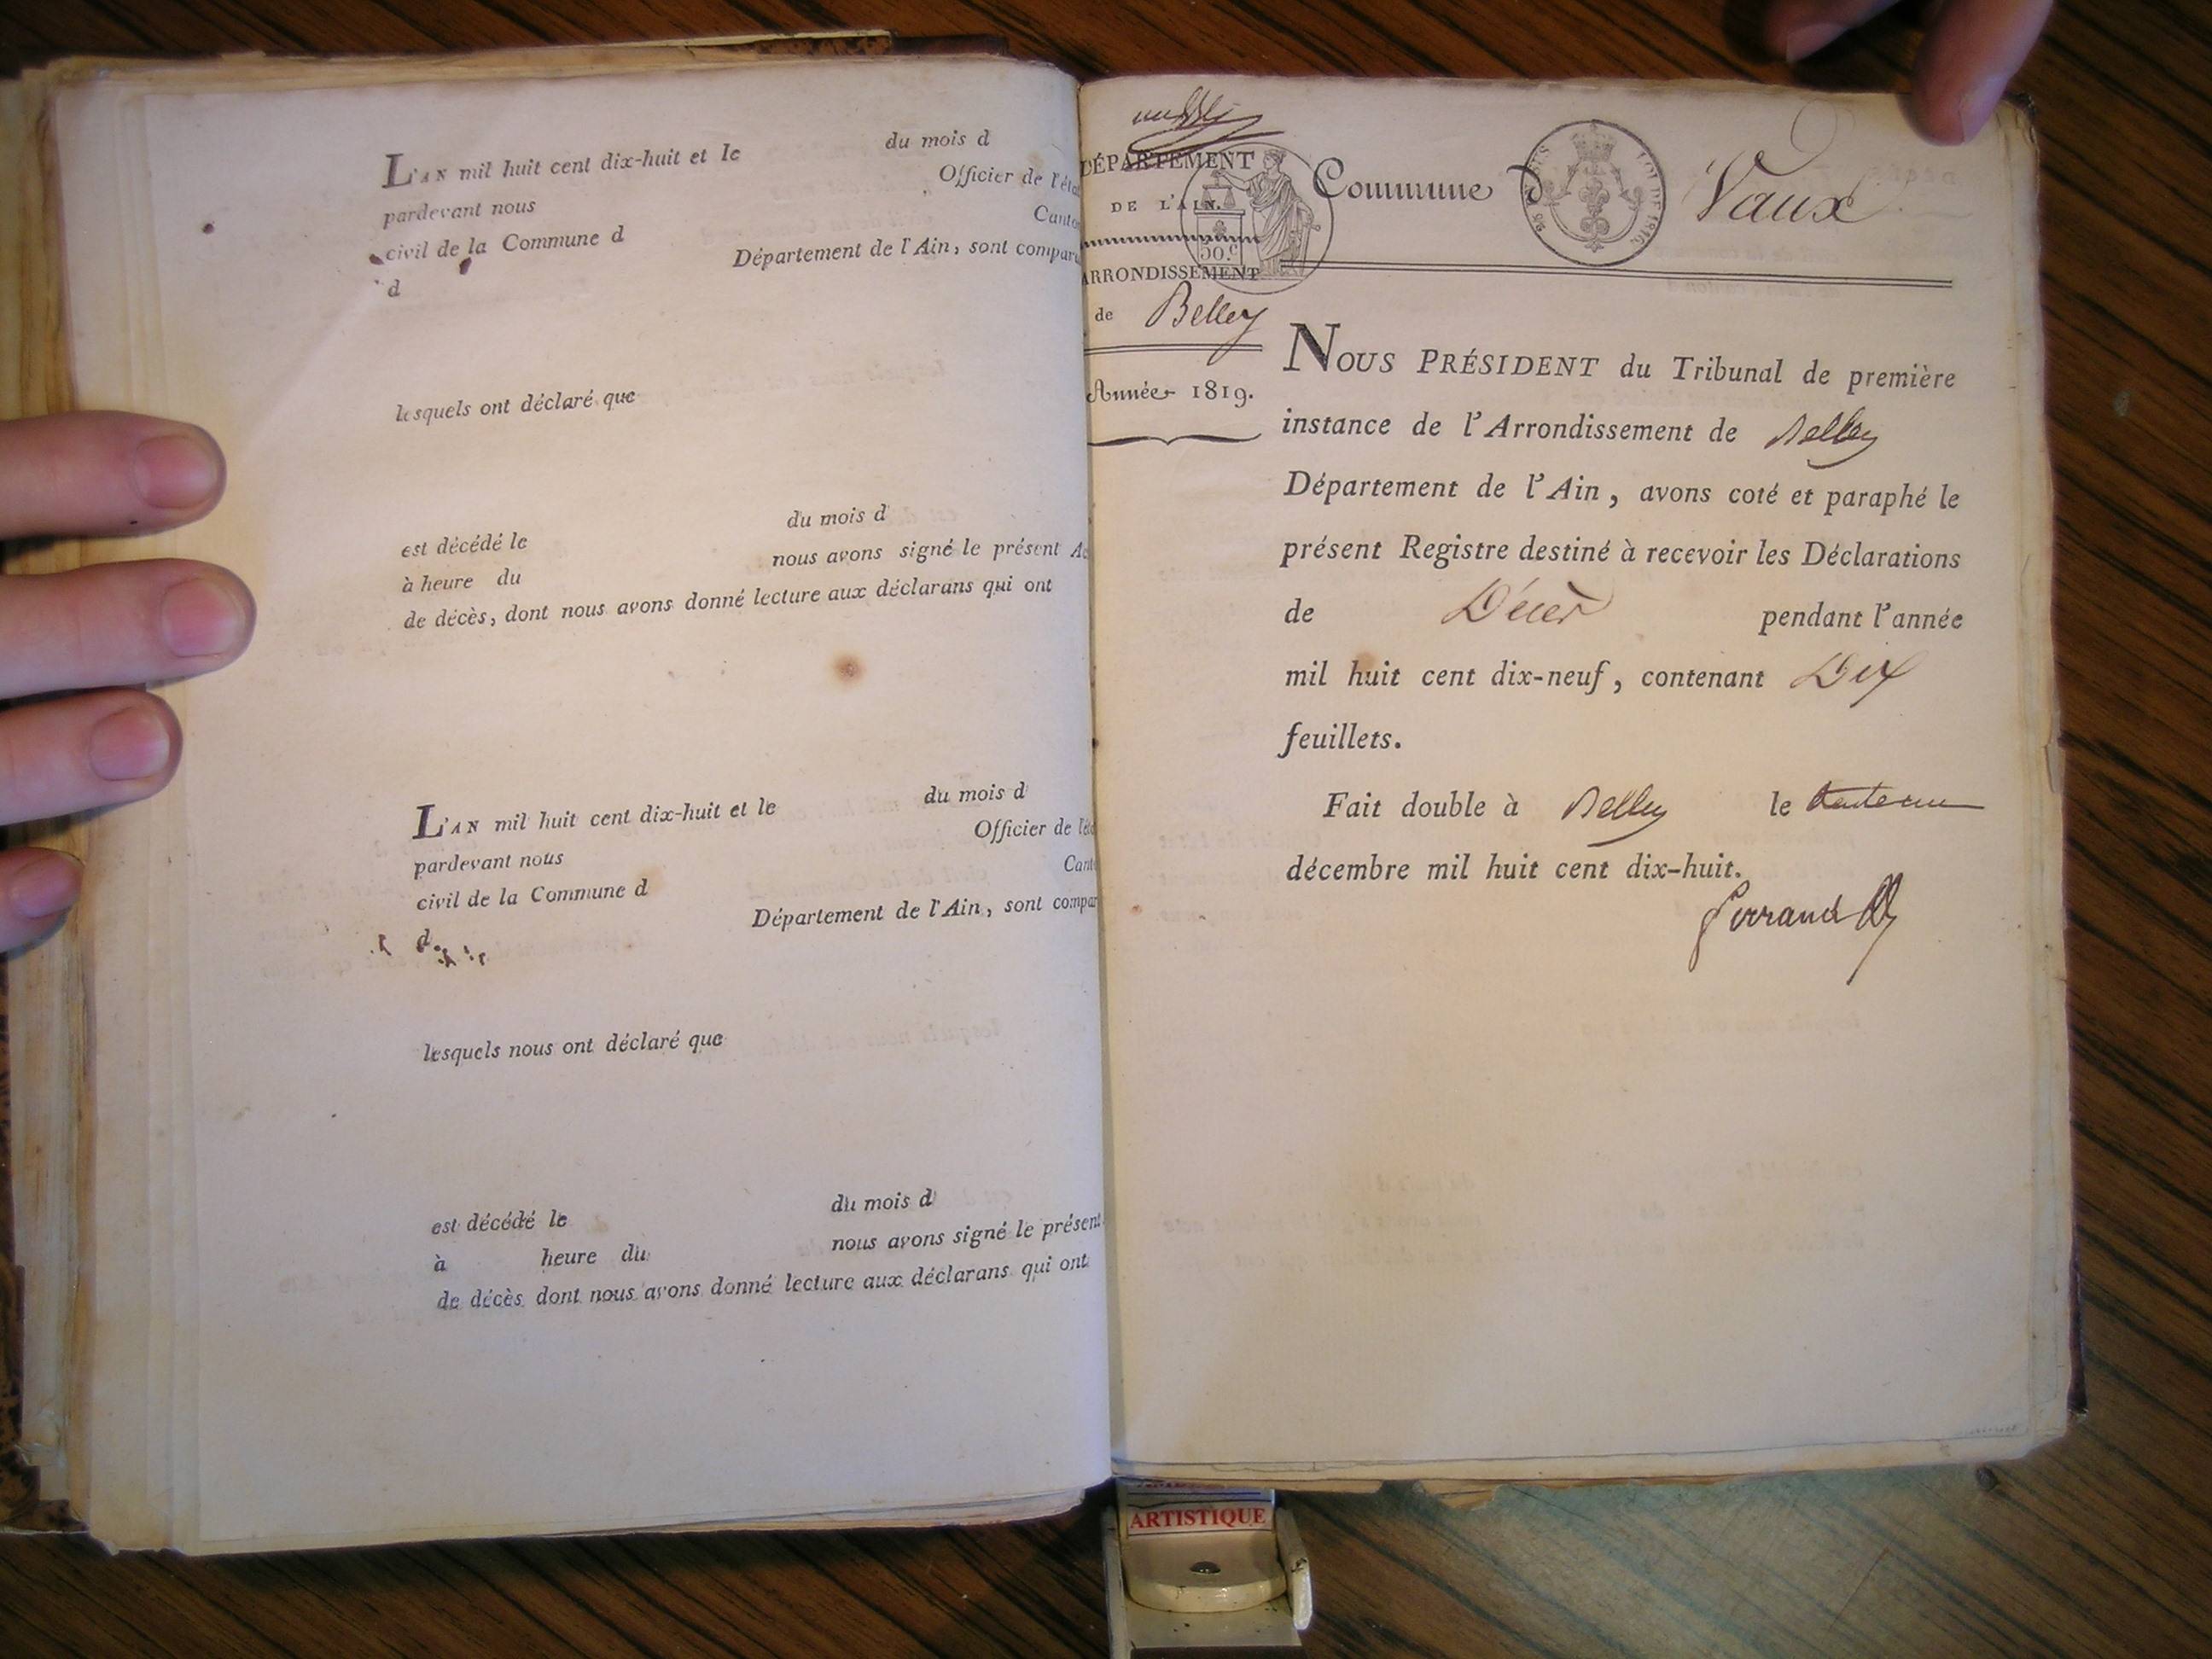 L'AN mil huit cent dix-huit et le du mois d
pardevant nous Officier de l'éta
civil de la Commune d Canto
Département de l'Ain, sont compar
d
lesquels ont déclaré que
est décédé le du mois d
à heure du nous avons signé le présent Ac
de décès, dont nous avons donné lecture aux déclarans qui ont
L'AN mil huit cent dix-huit et le du mois d
pardevant nous Officier de l'éta
civil de la Commune d Cant
Département de l'Ain, sont compar
d
lesquels nous ont déclaré que
est décédé le du mois d
à heure du nous avons signé le présent
de décès dont nous avons donné lecture aux déclarans qui ont
DÉPARTEMENT
DE L'AIN.
50.C
ARRONDISSEMENT
de Belley
Année 1819.
Commune d Vaux
NOUS PRÉSIDENT du Tribunal de première
instance de l'Arrondissement de Belley
Département de l'Ain, avons coté et paraphé le
présent Registre destiné à recevoir les Déclarations
de Décès pendant l'année
mil huit cent dix-neuf, contenant Dix
feuillets.
Fait double à Belley le trente un
décembre mil huit cent dix-huit.
ARTISTIQUE